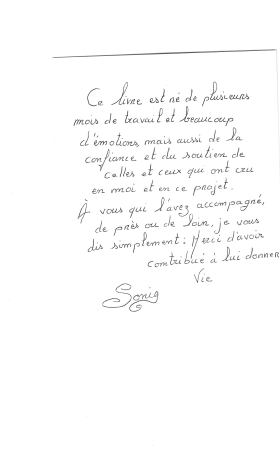 Ce livre est né de plusieurs
mois de travail et beaucoup
d'émotions, mais aussi de la
confiance et du soutien de
celles et ceux qui ont cru
en moi et en ce projet.
À vous qui l'avez accompagné,
de près ou de loin, je vous
dis simplement : Merci d'avoir
contribué à lui donner
Vie
Sonia